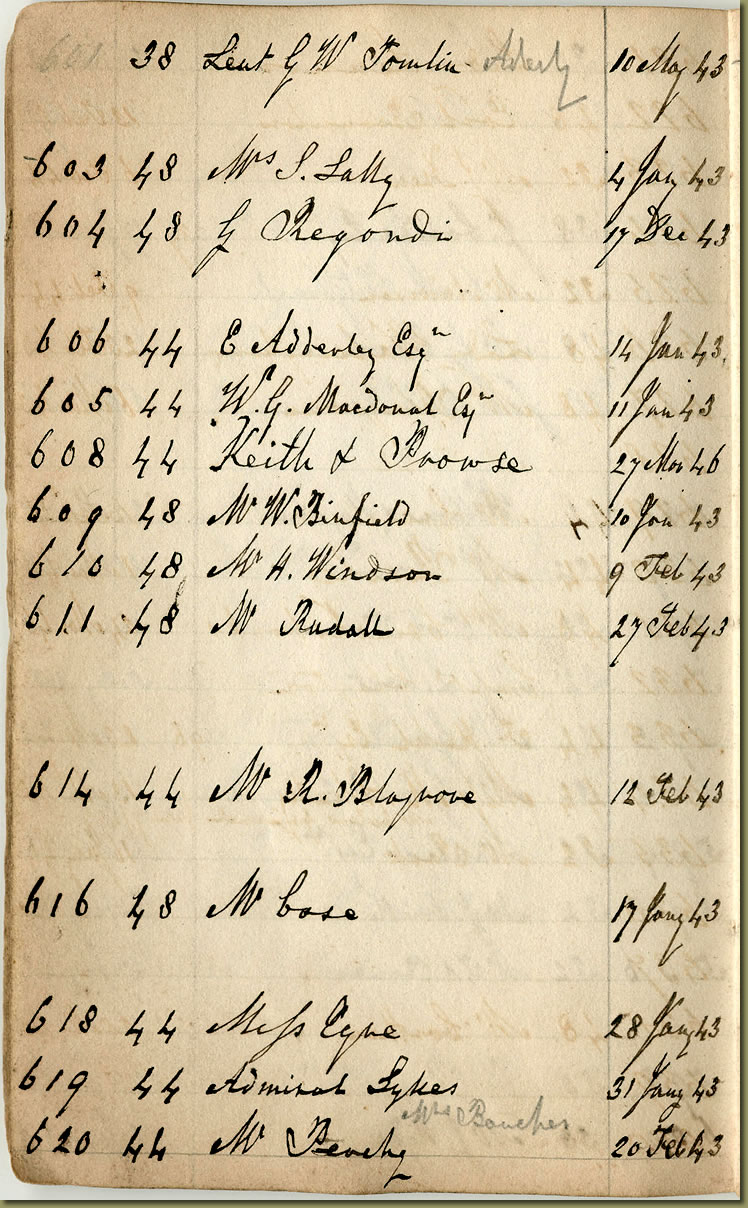 601 38 Lieut G W Tomlin Aderly 10 May 43
603 48 Mrs S. Lally 4 Jany 43
604 48 G Regondi 17 Dec 43
606 44 E Adderley Esqr 14 Jan 43
605 44 W. G. Macdonal Esqr 11 Jan 43
608 44 Keith & Prowse 27 Mar 46
609 48 Mr W. Binfield 10 Jan 43
610 48 Mr H. Windson 9 Feb 43
611 48 Mr Rudall 27 Feb 43
614 44 Mr R. Blagrove 12 Feb 43
616 48 Mr Case 17 Jany 43
618 44 Miss Eyre 28 Jany 43
619 44 Admiral Sykes 31 Jany 43
Mrs Bouches
620 44 Mr 20 Feb 43